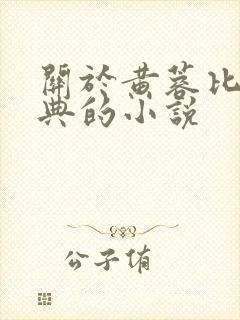 關於黄蓉比
典的小說
公子侑